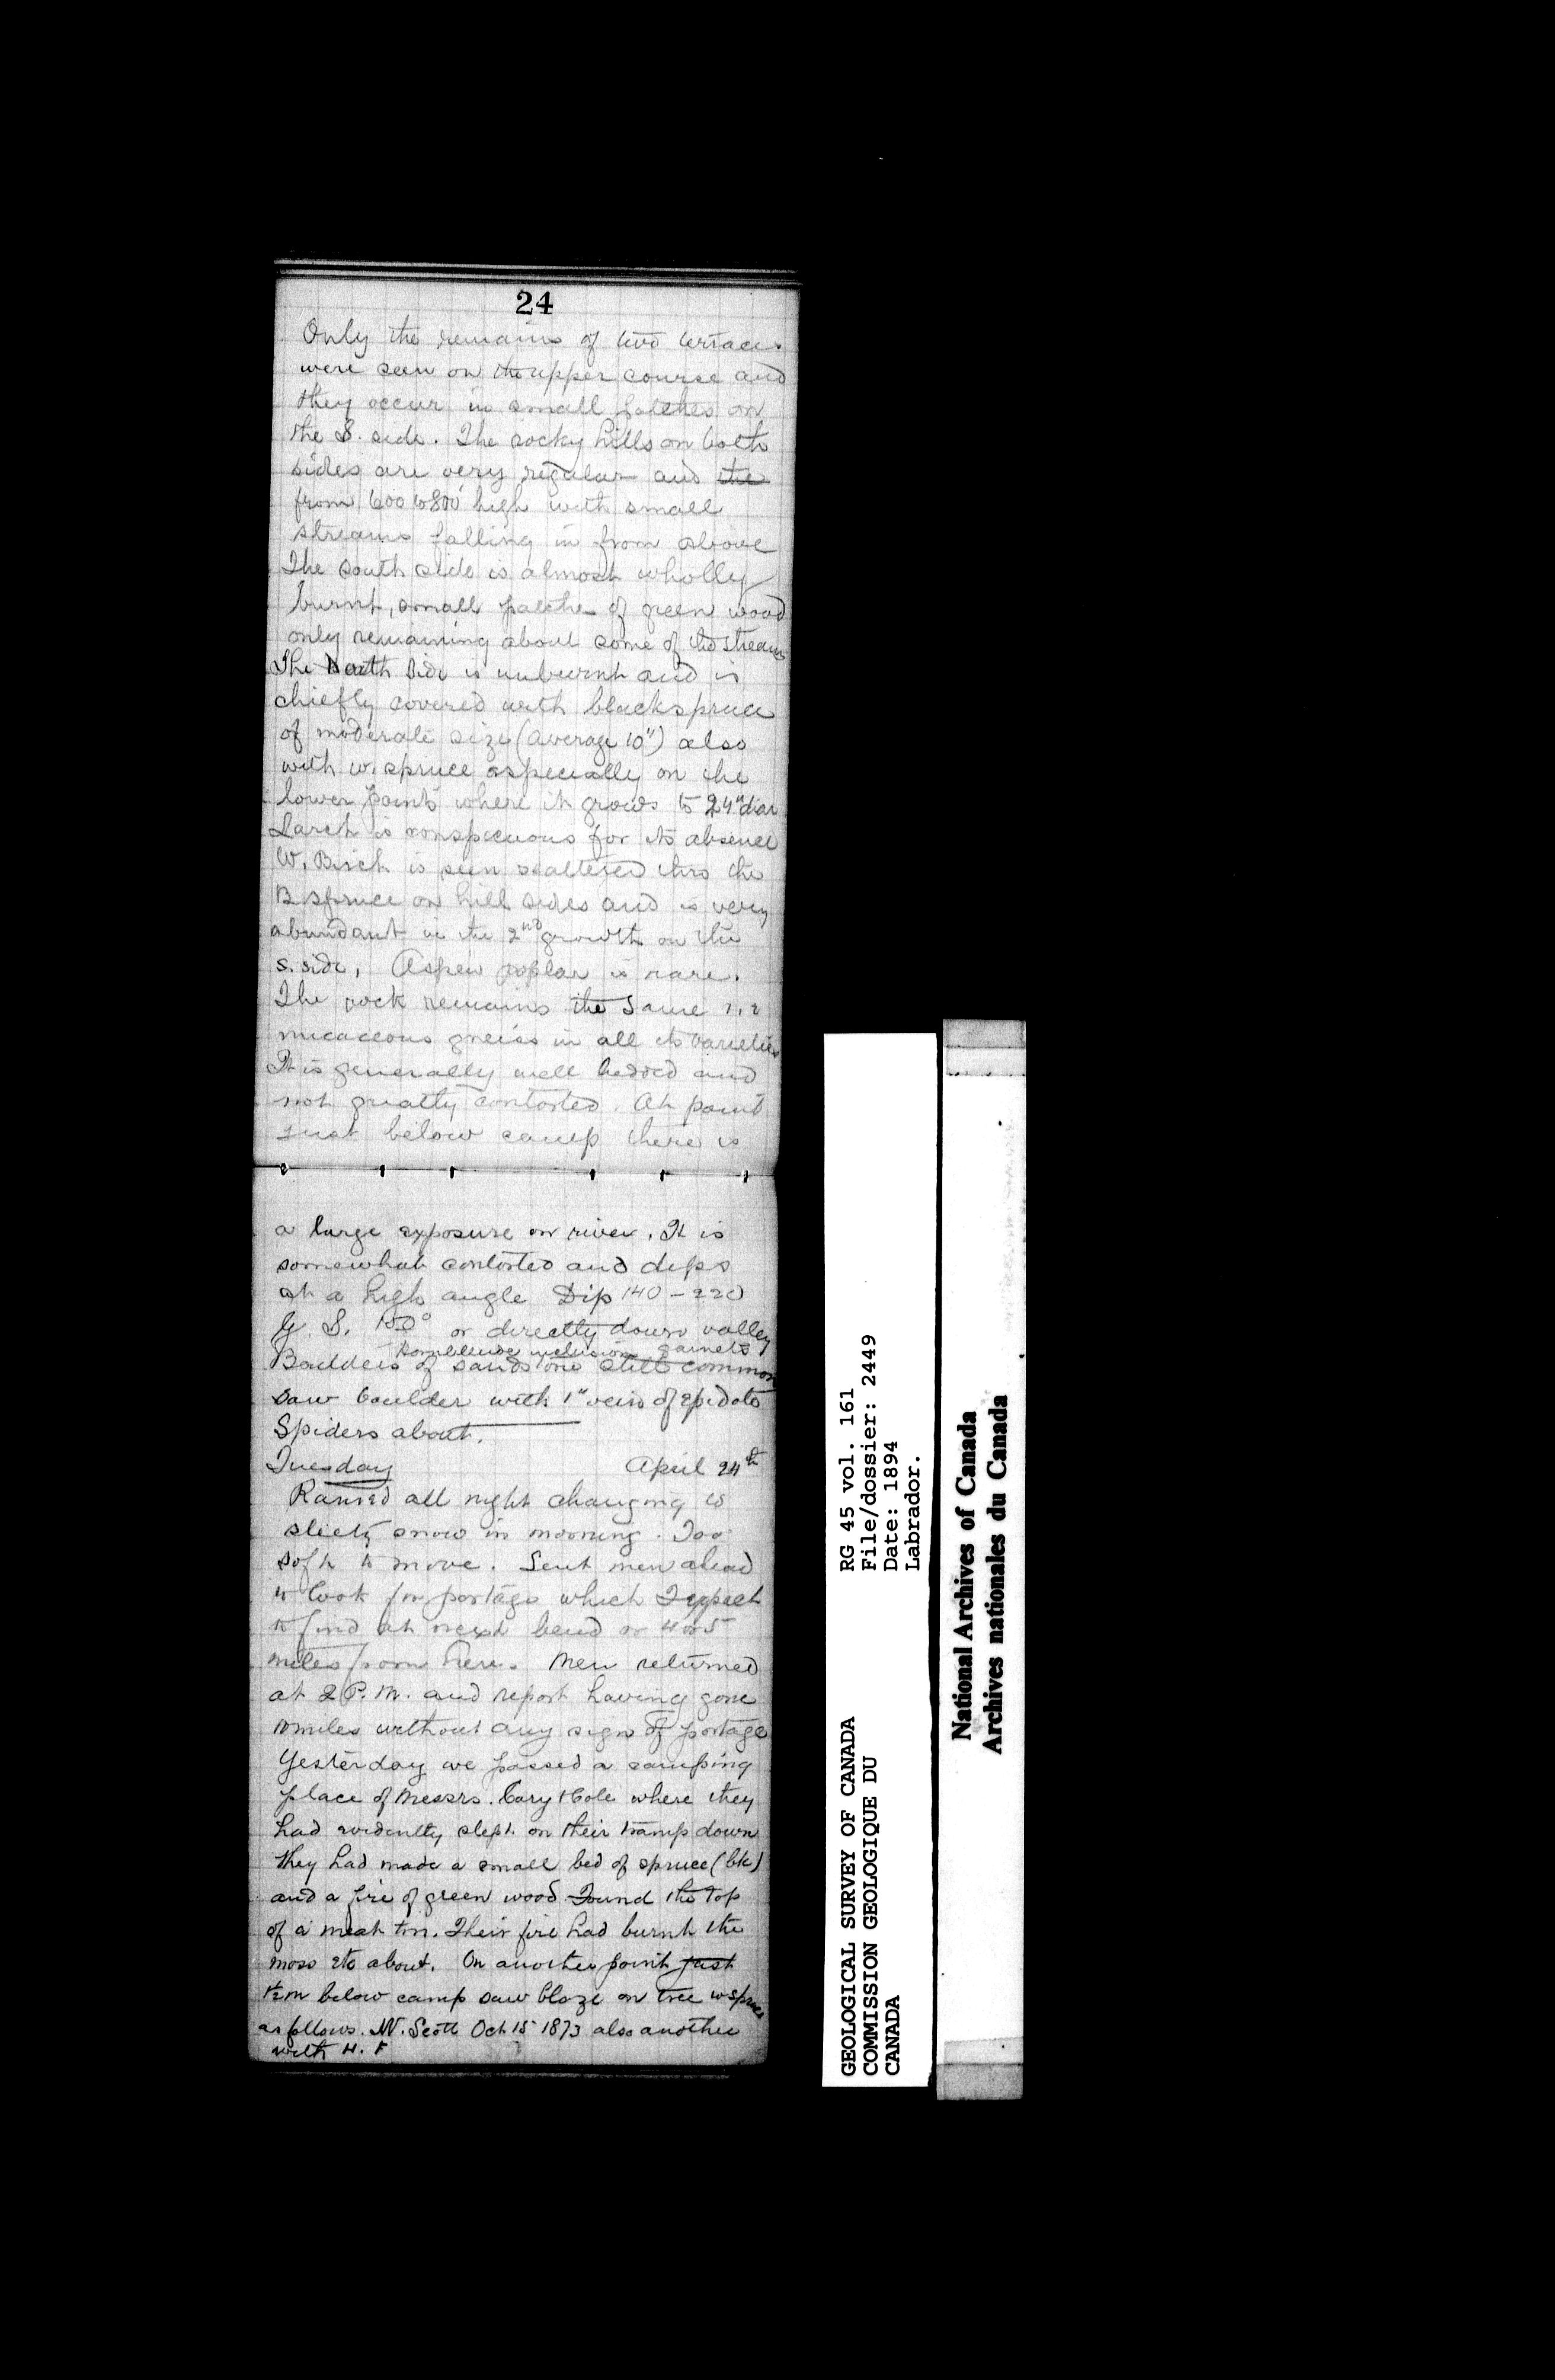 24
Only the remains of two terraces
were seen on the upper course and
they occur in small patches on
the S. side. The rocky hills on both
sides are very regular and the
from 600 to 800' high with small
streams falling in from above
The south side is almost wholly
burnt, small patches of green wood
only remaining about some of the streams
The North Side is unburnt and is
chiefly covered with black spruce
of moderate size (average 10") also
with w. spruce especially on the
lower points where it grows to 24" diar
Larch is conspicuous for its absence
W. Birch is seen scattered thro the
B spruce on hill sides and is very
abundant in the 2nd growth on the
S. side, Aspen poplar is rare.
The rock remains the same
micaceous gneiss in all its varieties
It is generally well bedded and
not greatly contorted. At point
just below camp there is
a large exposure on river. It is
somewhat contorted and dips
at a high angle Dip 140 - 220
G. S. 150° or directly down valley
Hornblende inclusions garnets
Boulders of sandstone still common
saw boulder with 1" vein of epidote
Spiders about.
Tuesday April 24th
Rained all night changing to
sleety snow in morning. Too
soft to move. Sent men ahead
to look for portage which I expect
to find at next bend or 4 or 5
miles from here. Men returned
at 2 P.M. and report having gone
10 miles without any sign of portage
Yesterday we passed a camping
place of Messrs. Cary & Cole where they
had evidently slept on their tramp down
they had made a small bed of spruce (bk)
and a fire of green wood Found the top
of a meat tin. Their fire had burnt the
moss etc about. On another point just
½ m below camp saw blaze on tree w spruce
as follows. W. Scott Oct 15 1873 also another
with H. F
GEOLOGICAL SURVEY OF CANADA
COMMISSION GEOLOGIQUE DU
CANADA
RG 45 vol. 161
File/dossier: 2449
Date: 1894
Labrador.
National Archives of Canada
Archives nationales du Canada